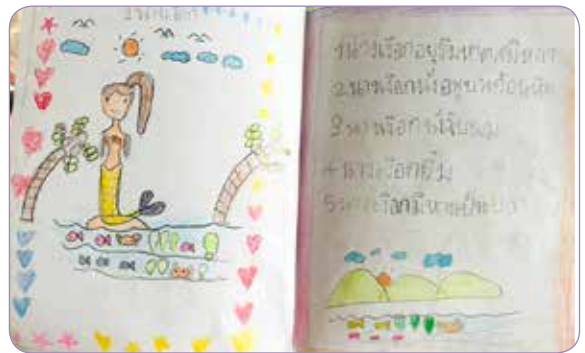 นางเงือก
1 นางเงือกอยู่ริมหาดสมิหลา
2 นางเงือกนั่งอยู่บนก้อนหิน
3 นางเงือก
4 นางเงือกยิ้ม
5 นางเงือกมีหางเป็นปลา